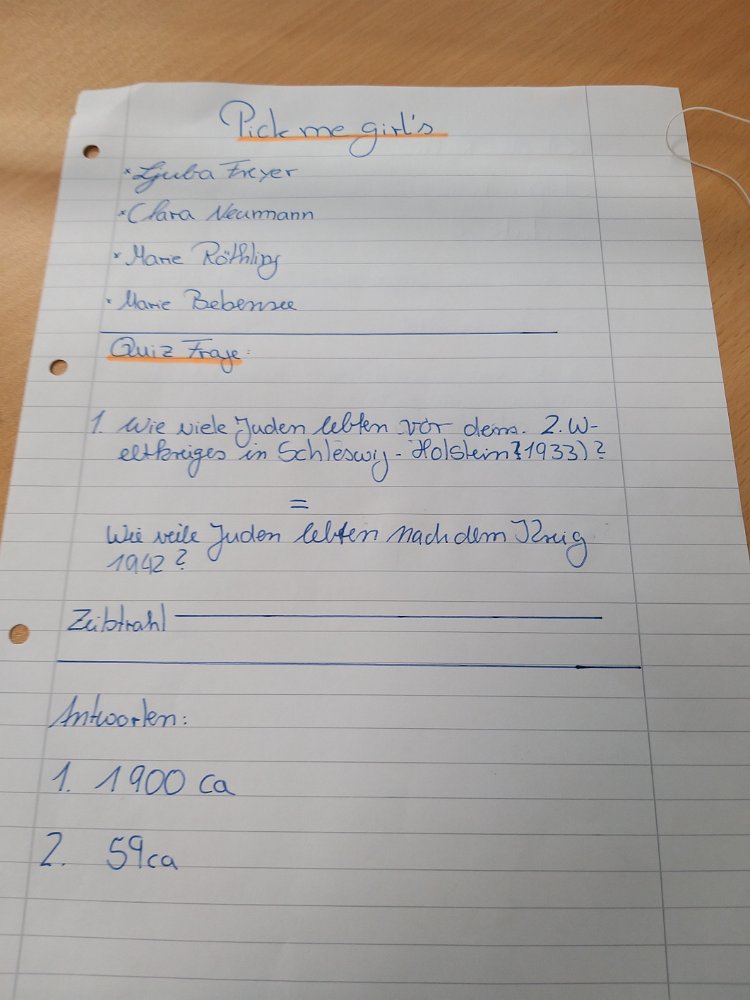 Pick me girl's
* Ljuba Freyer
* Clara Neumann
* Marie Röthling
* Marie Bebensee
Quiz Frage:
1. Wie viele Juden lebten vor dem. 2. W-
eltkreiges in Schleswig-Holstein (1933)?
=
Wie veile Juden lebten nach dem Kreig
1942?
Zeibtrahl
Antworten:
1. 1900 ca
2. 59 ca